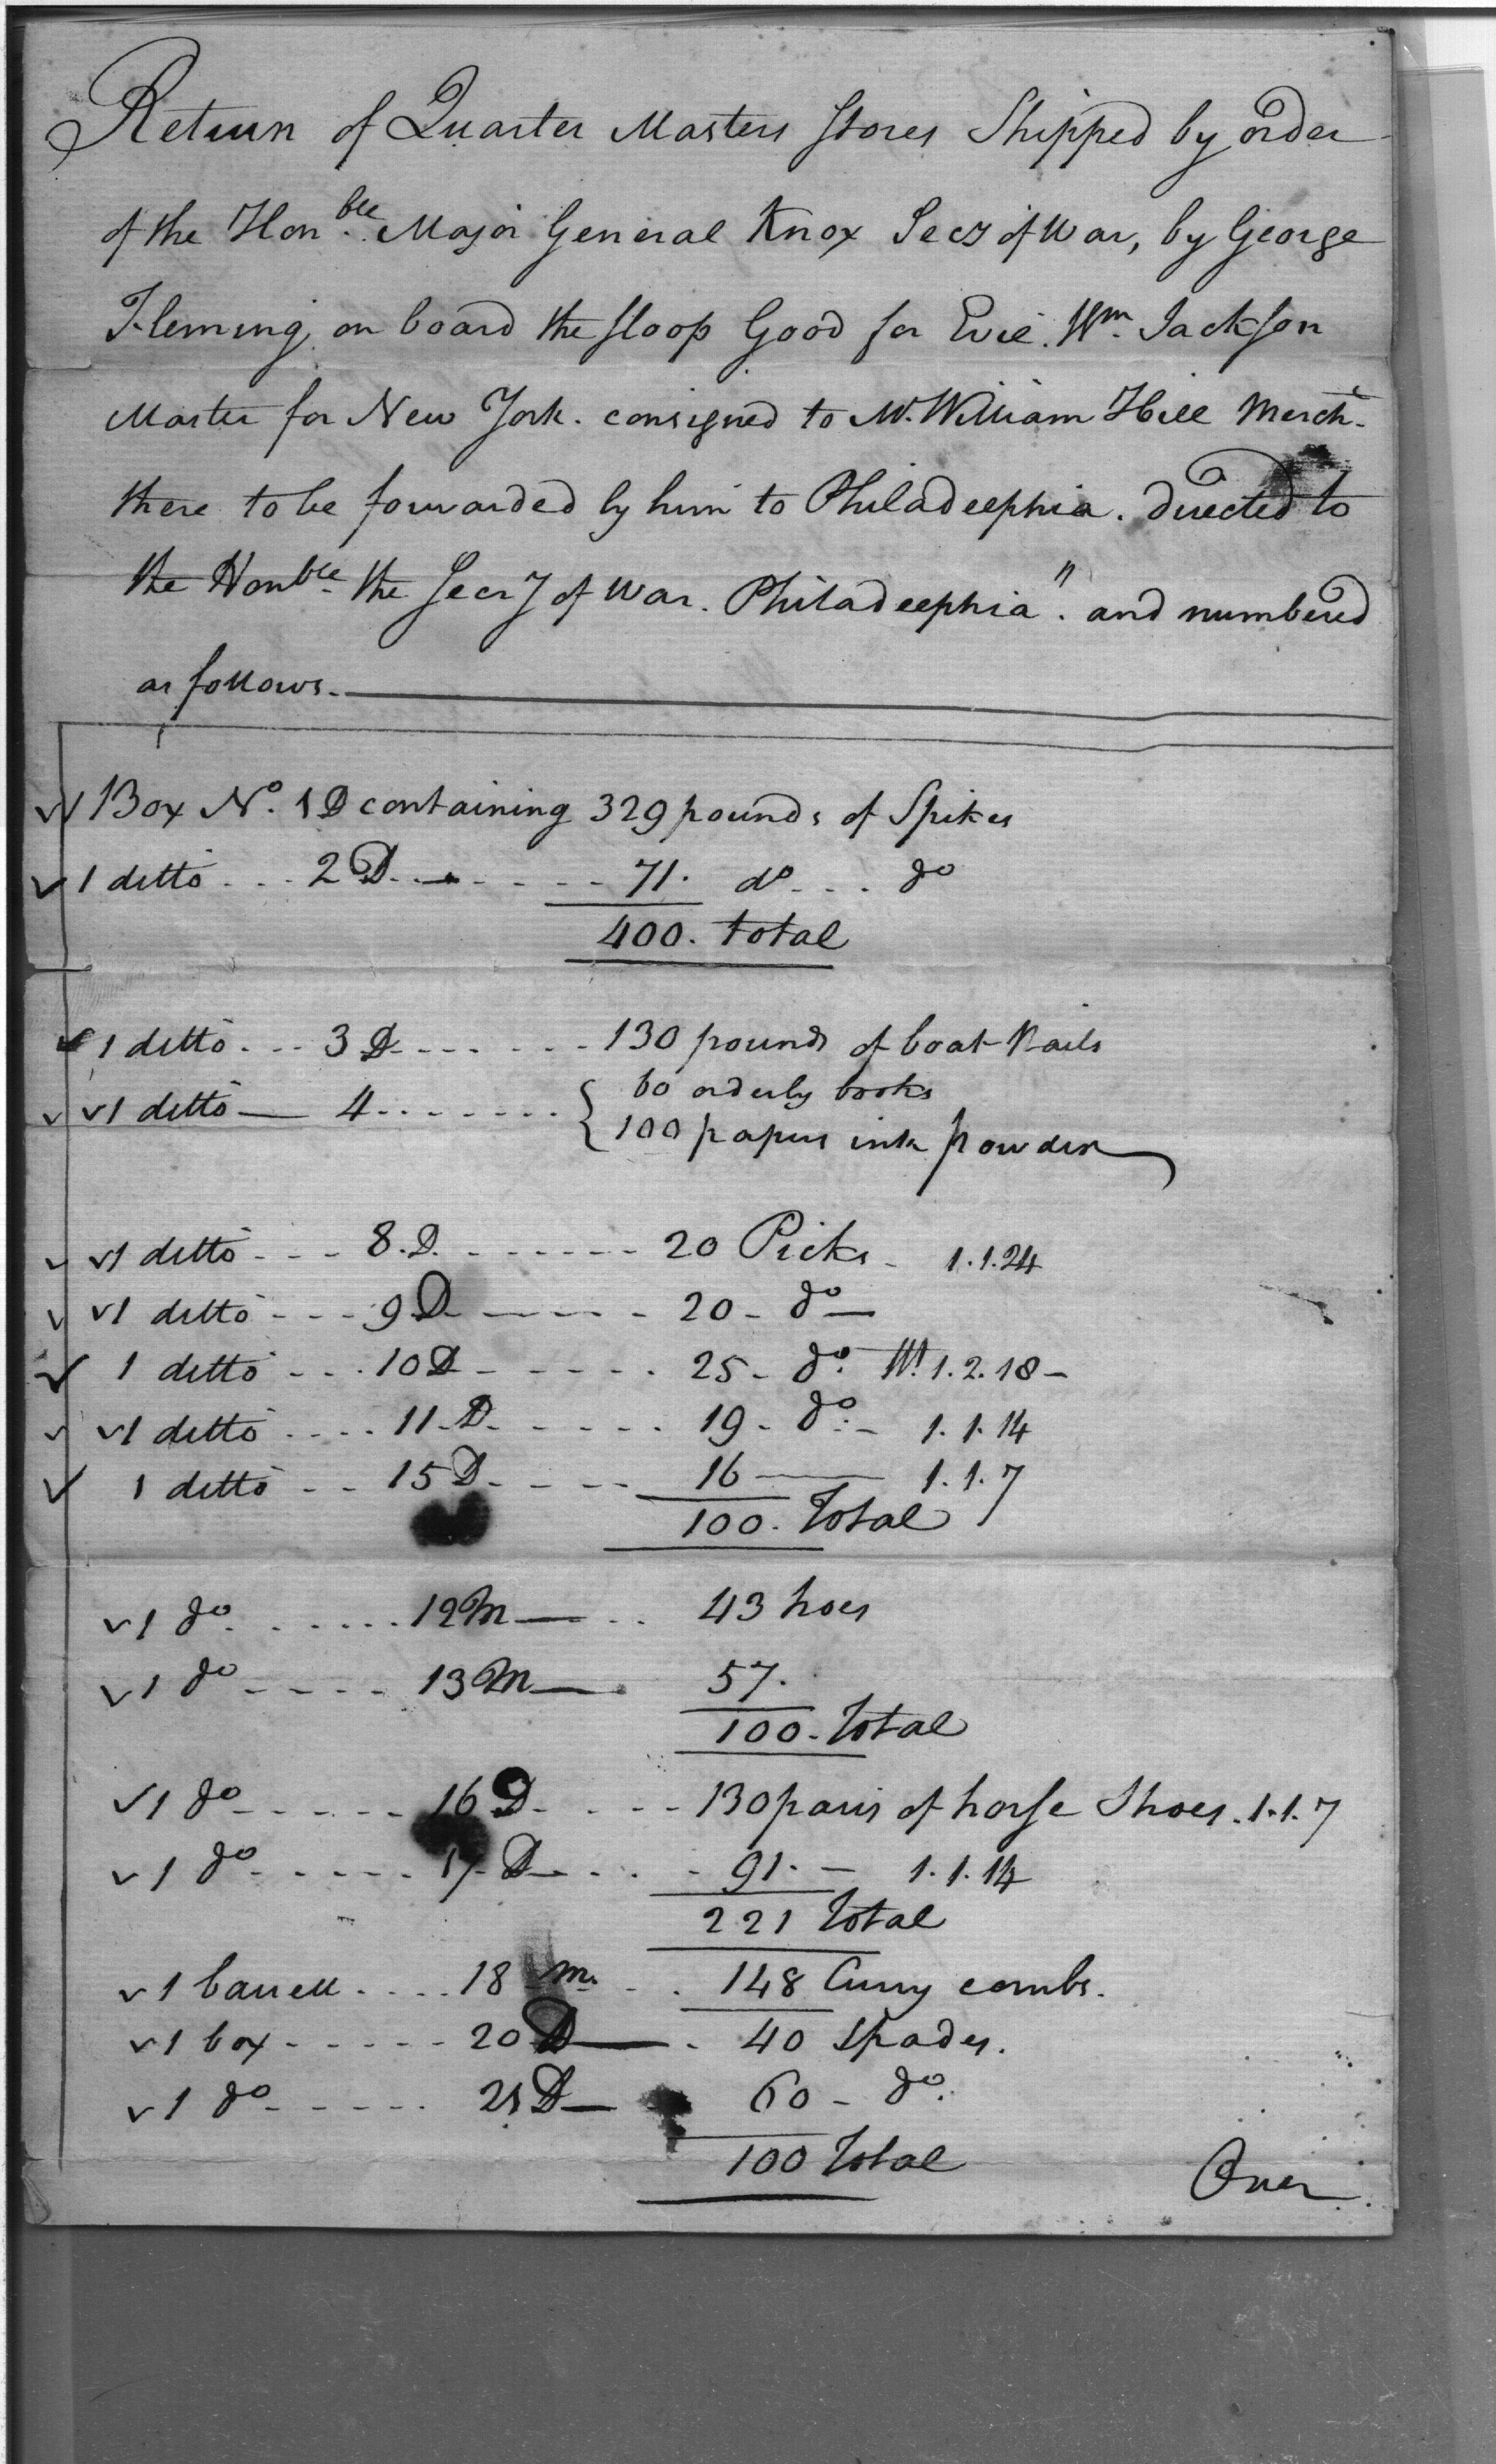 Return of Quarter Masters Stores Shipped by order
of the Honble. Major General Knox Secy of War, by George
Fleming, on board the Sloop Good for Evil. Wm. Jackson
Master for New York. consigned to Mr. William Hill Mercht.
there to be forwarded by him to Philadelphia. directed to
the Honble. the Secry of War. Philadelphia". and numbered
as follows.
1 Box No. 1 D containing 329 pounds of Spikes
1 ditto... 2 D...... 71. do... do
400. total
1 ditto... 3 D....... 130 pounds of boat Nails
1 ditto — 4....... { 60 orderly books
100 papers ink powder
1 ditto... 8. D....... 20 Picks - 1.1.24
1 ditto... 9 D..... 20 - do —
1 ditto... 10 D...... 25 - do. Wt. 1.2.18 -
1 ditto.... 11 - D...... 19 - do. - 1.1.14
1 ditto... 15 D.... 16 — 1.1.7
100. Total
1 do...... 12 M —.. 43 hoes
1 do..... 13 M —. 57.
100. Total
1 do...... 16 D.... 130 pairs of horse Shoes. 1.1.7
1 do...... 17 - D.... 91. — 1.1.14
221 Total
1 barrell.... 18 M... 148 Curry combs.
1 box...... 20 D —. 40 Spades.
1 do...... 21 D — 60 - do.
100 Total
Over